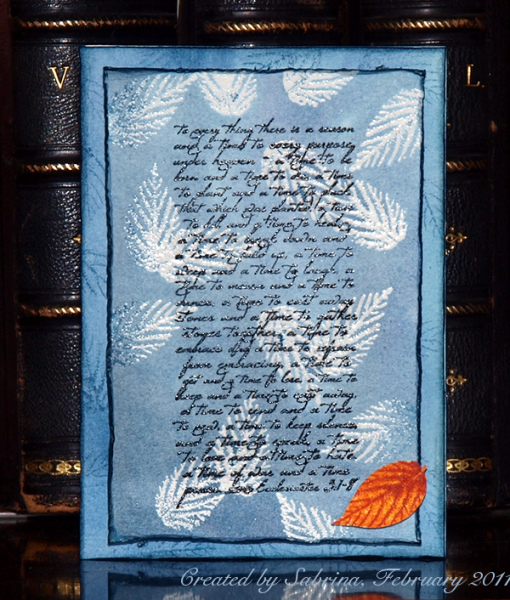 V
L.
to every thing there is a season
and a time to every purpose
under heaven - a time to be
born and a time to die a time
to plant and a time to pluck
that which was planted a time
to kill and a time to heal
a time to break down and
a time to build up, a time to
weep and a time to laugh, a
time to mourn and a time to
dance, a time to cast away
stones and a time to gather
stones together, a time to
embrace and a time to refrain
from embracing, a time to
get and a time to lose a time to
keep and a time to cast away,
a time to rend and a time
to a time to keep silence
and a time to speak, a time
to love and a time to hate
a time of war and a time
Ecclesiastes 3:1-8
Created by Sabrina. February 2011